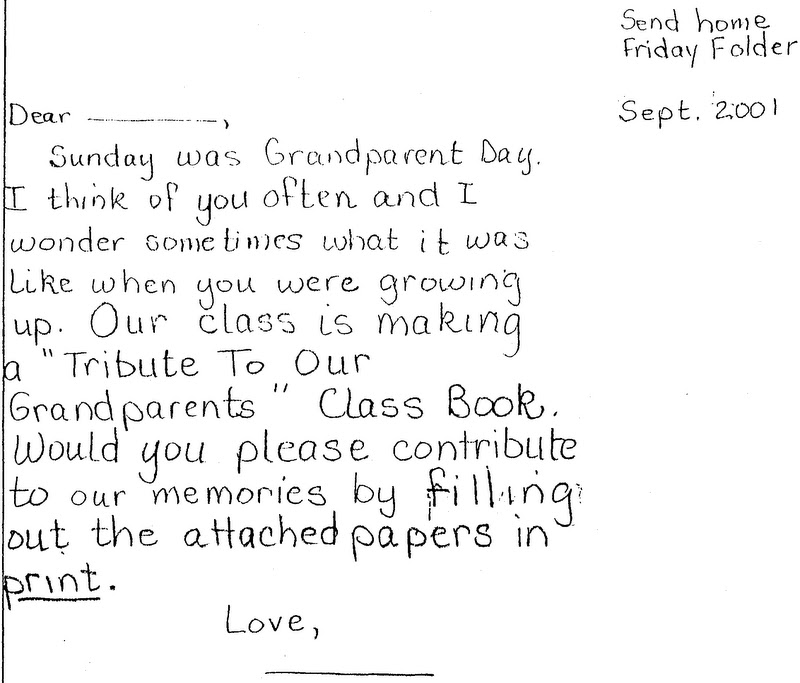 Send home
Friday Folder
Sept. 2001
Dear ________,
Sunday was Grandparent Day.
I think of you often and I
wonder sometimes what it was
like when you were growing
up. Our class is making
a "Tribute To Our
Grandparents" Class Book.
Would you please contribute
to our memories by filling
out the attached papers in
print.
Love,
________